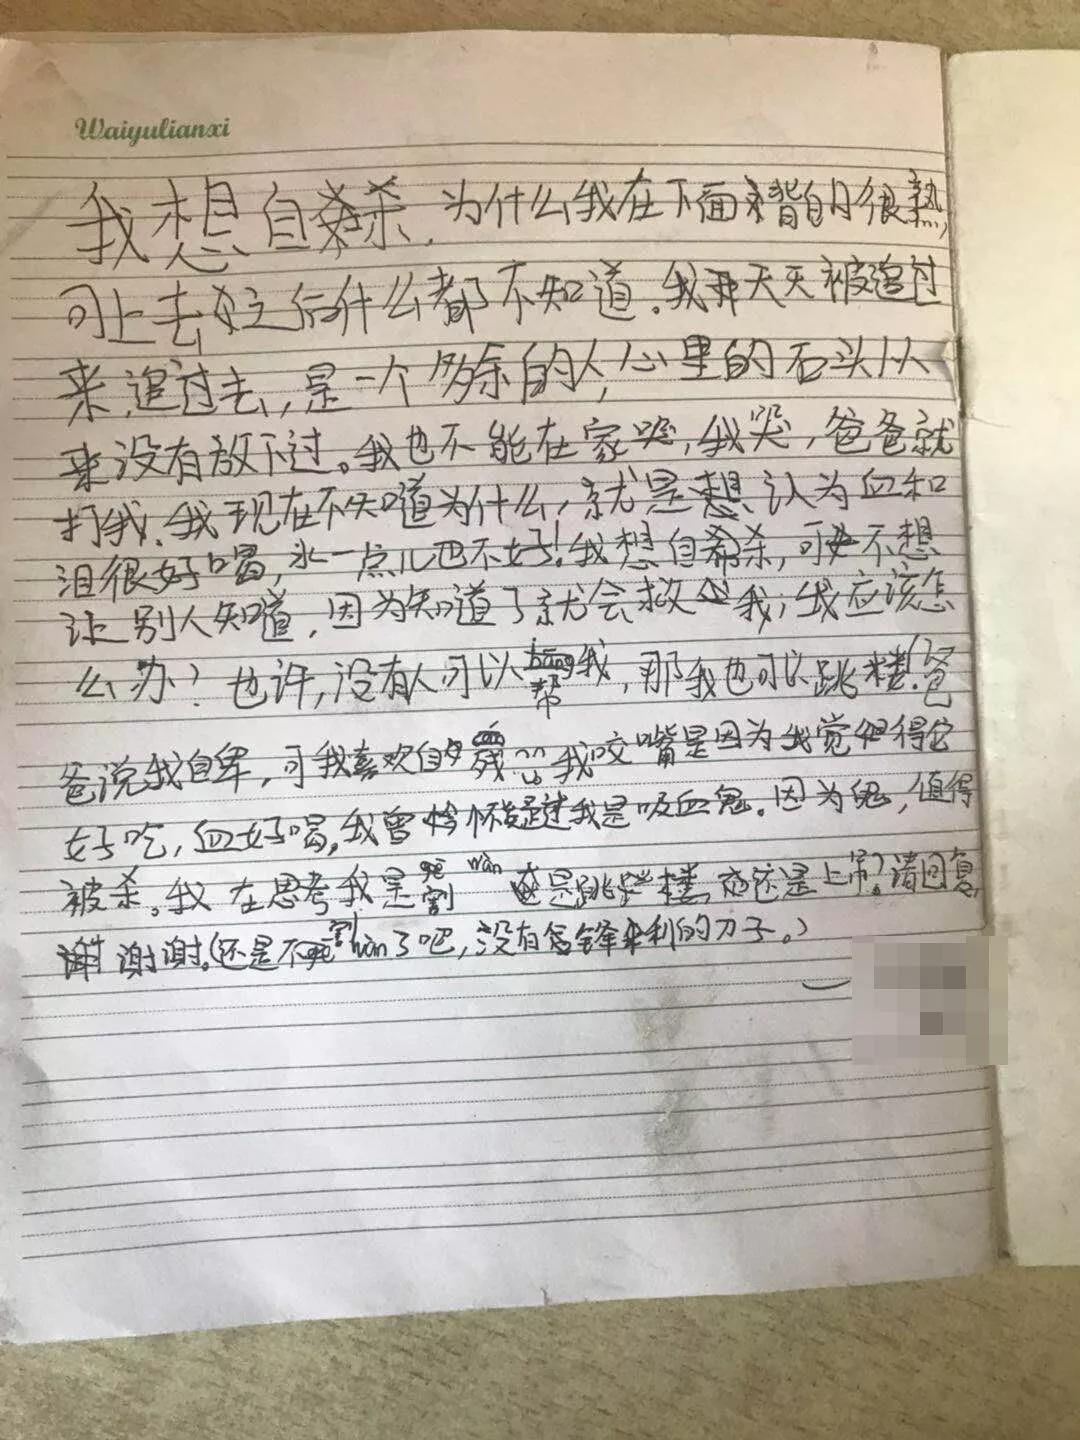 Waiyulianxi
我想自杀，为什么我在下面背的很熟，
可上去之后什么都不知道。我天天被追过
来，追过去，是一个多余的人，心里的石头从
来没有放下过。我也不能在家哭，我哭，爸爸就
打我，我现在不知道为什么，就是想认为血和
泪很好喝，水一点儿也不好！我想自杀，可不想
让别人知道，因为知道了就会救我；我应该怎
么办？也许，没有人可以bāng帮我，那我也可以跳楼。（爸
爸说我自卑，可我喜欢自残cán……我咬嘴是因为我觉得它
好吃，血好喝，我曾怀疑过我是吸血鬼。因为鬼，值得
被杀。我在思考我是割wàn还是跳楼，还是上吊？请回复，
谢谢谢。（还是不割wàn了吧，没有锋利的刀子。）